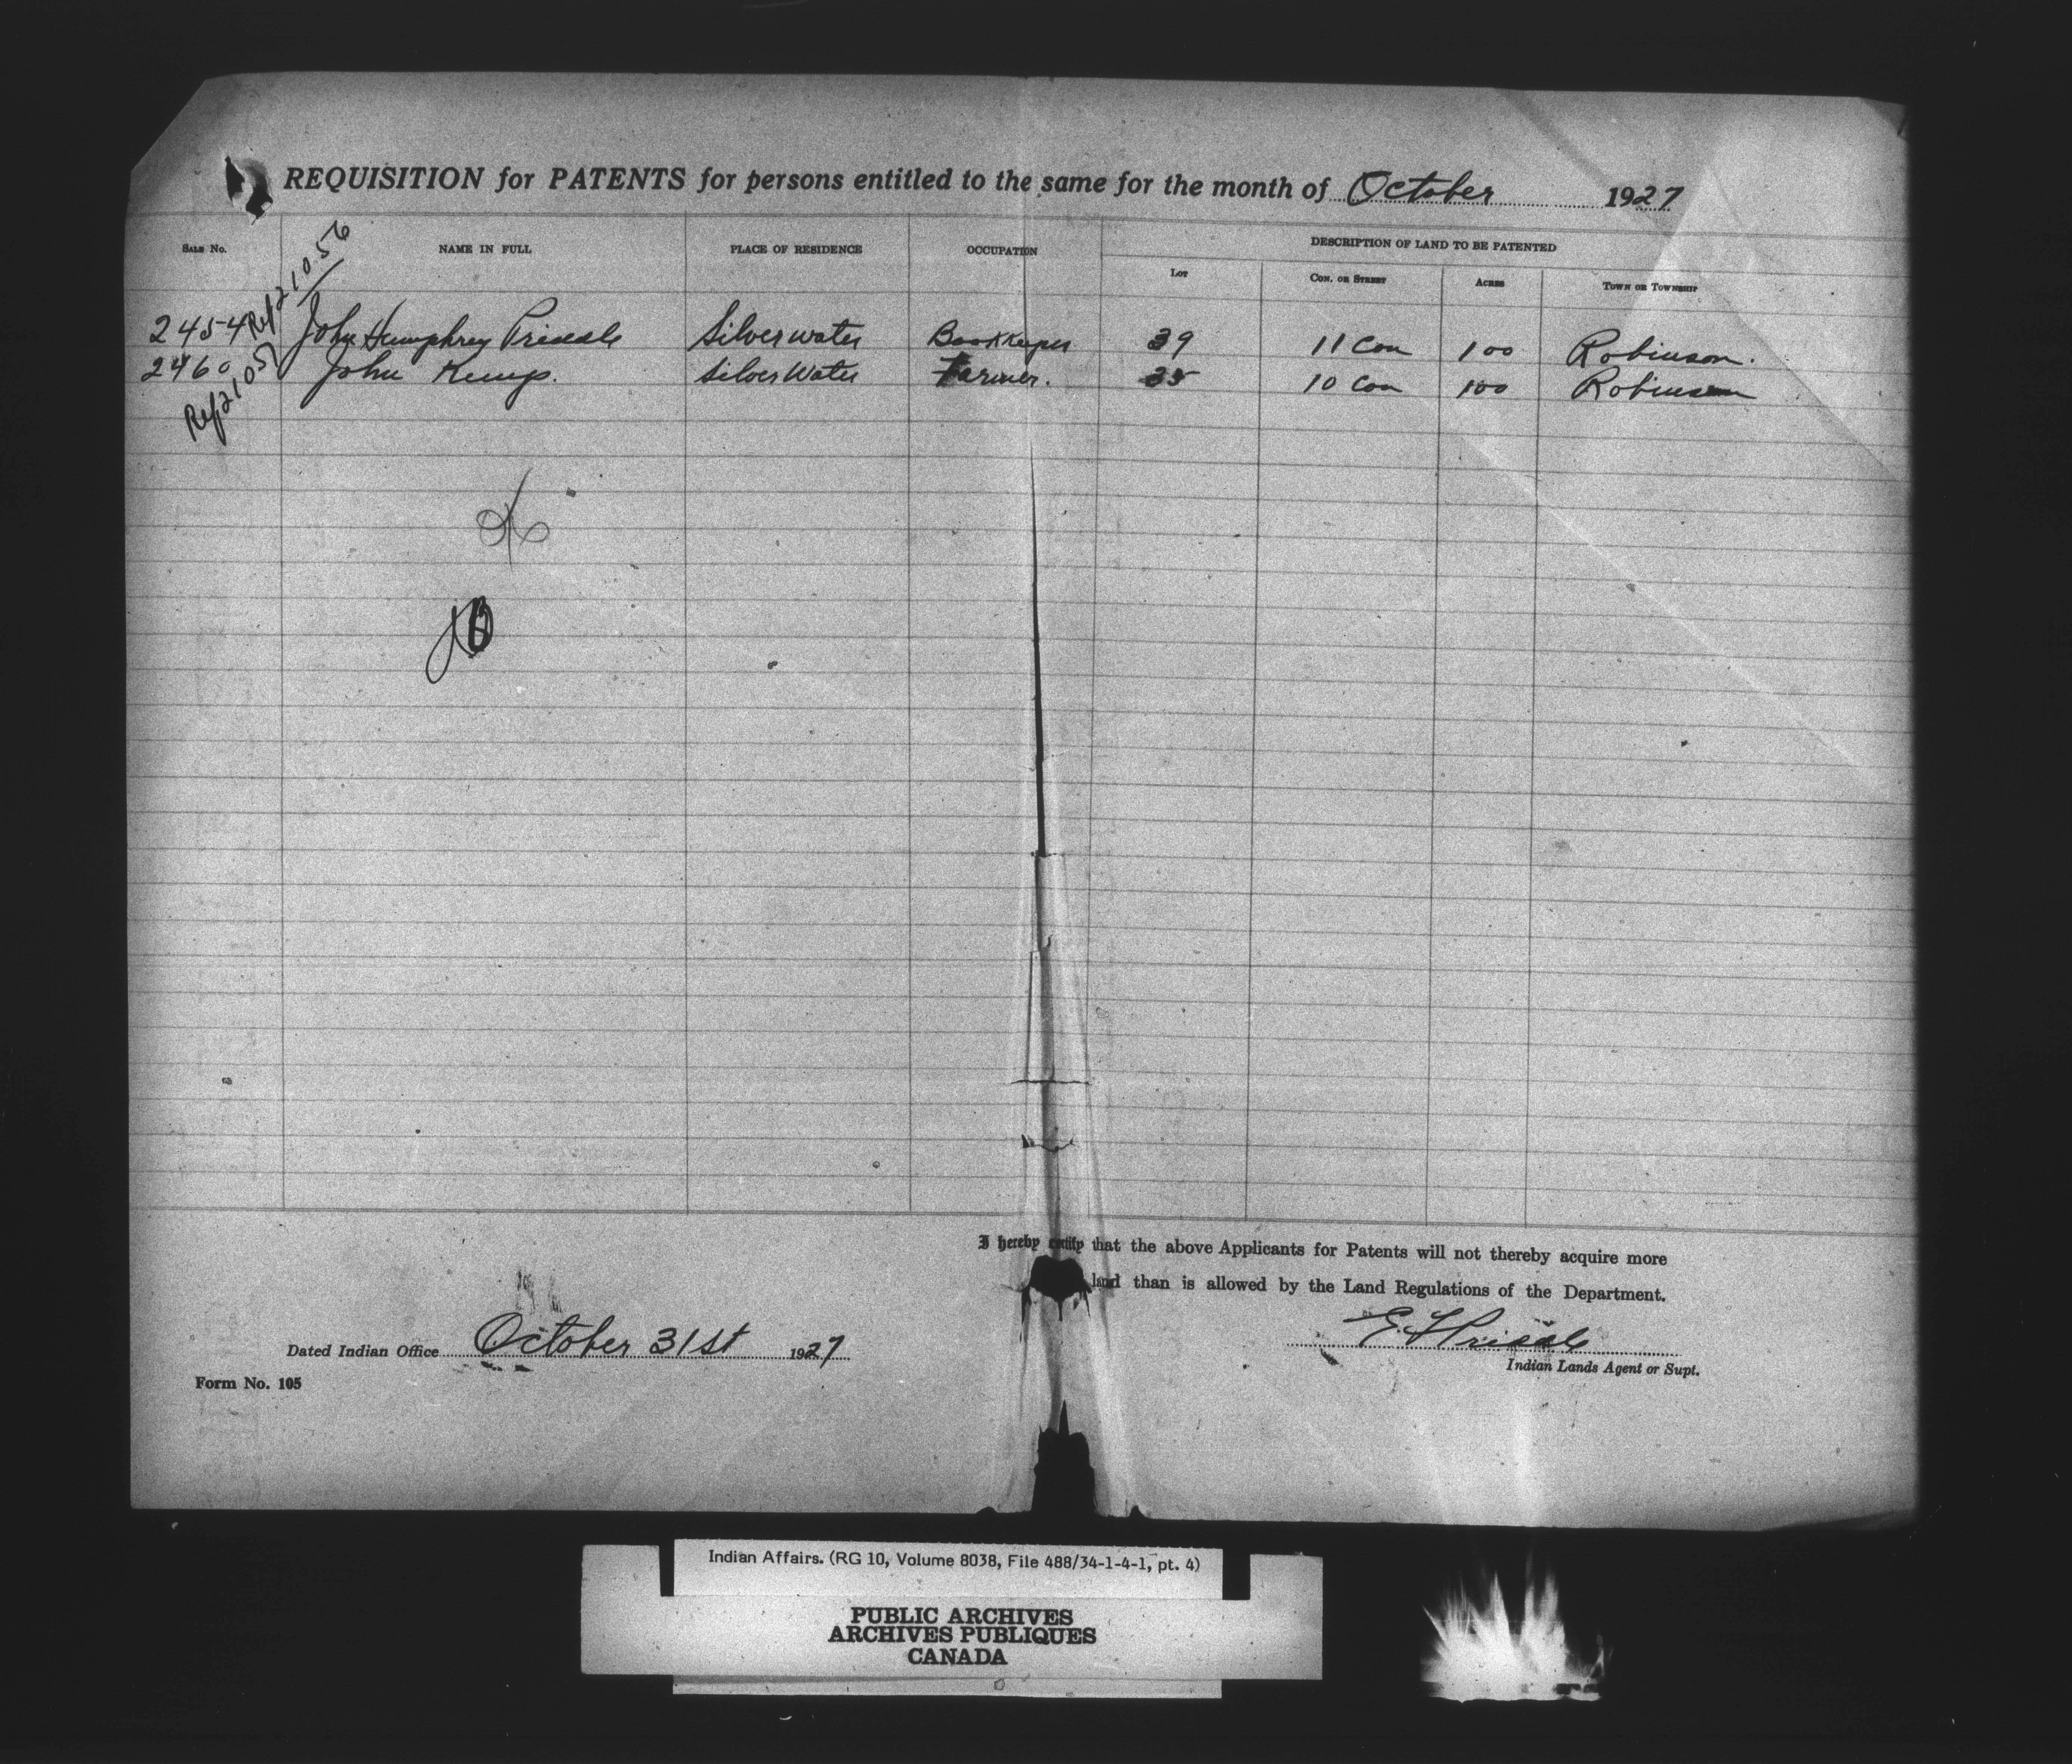 REQUISITION for PATENTS for persons entitled to the same for the month of October 1927
SALE No. NAME IN FULL PLACE OF RESIDENCE OCCUPATION DESCRIPTION OF LAND TO BE PATENTED
LOT CON. OR STREET ACRES TOWN OR TOWNSHIP
Ref 21056
2454 John Humphrey Priddle Silverwater Bookkeeper 39 11 Con 100 Robinson.
2460 John Kemp. Silver Water Farmer. 35 10 Con 100 Robinson
Ref 21057
I hereby certify that the above Applicants for Patents will not thereby acquire more
land than is allowed by the Land Regulations of the Department.
Dated Indian Office October 31st 1927
E. F. Priddle
Indian Lands Agent or Supt.
Form No. 105
Indian Affairs. (RG 10, Volume 8038, File 488/34-1-4-1, pt. 4)
PUBLIC ARCHIVES
ARCHIVES PUBLIQUES
CANADA